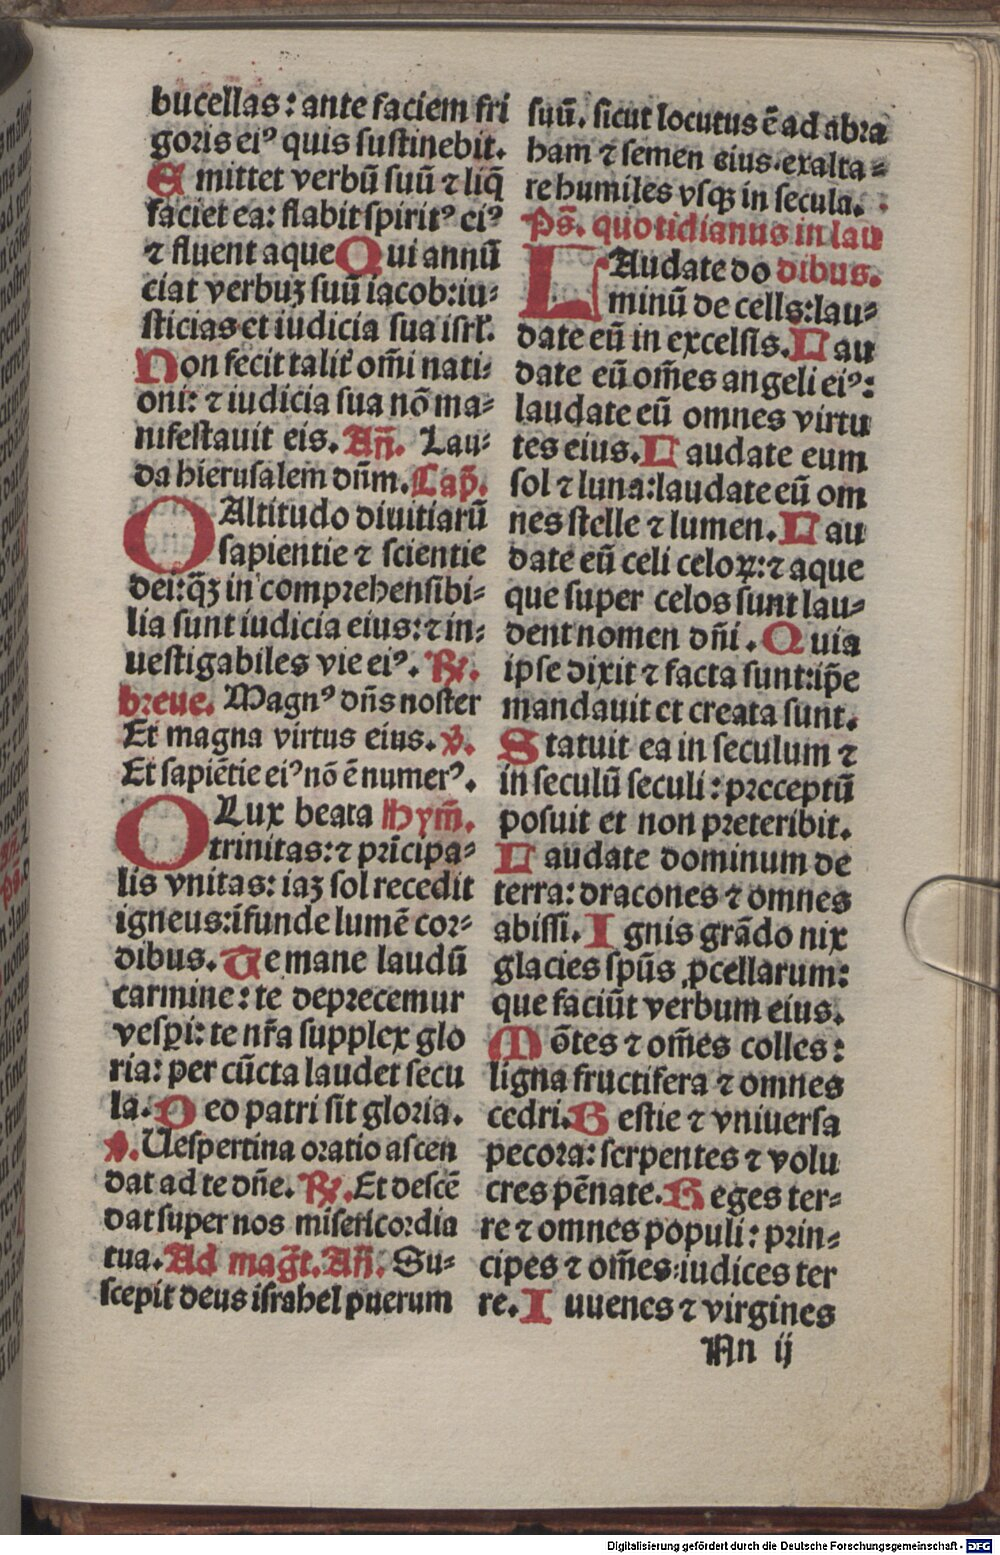 bucellas: ante faciem fri
goris eiꝰ quis sustinebit.
Emittet verbū suū ⁊ liq̄
faciet ea: flabit spiritꝰ eiꝰ
⁊ fluent aque Qui annū
ciat verbuꝫ suū iacob: iu⸗
sticias et iudicia sua isrl̕.
Non fecit talit̕ om̄i nati⸗
oni: ⁊ iudicia sua nō ma⸗
nifestauit eis. An̄. Lau⸗
da hierusalem dn̄m. Cap̄.
O Altitudo diuitiarū
sapientie ⁊ scientie
dei: q̄ꝫ in comprehensibi⸗
lia sunt iudicia eius: ⁊ in⸗
uestigabiles vie eiꝰ. ℟.
breue. Magnꝰ dn̄s noster
Et magna virtus eius. ℣.
Et sapiētie eiꝰ nō ē numerꝰ.
O Lux beata Hym̄.
trinitas: ⁊ prīcipa⸗
lis vnitas: iaꝫ sol recedit
igneus: īfunde lumē cor⸗
dibus. Te mane laudū
carmine: te deprecemur
vesꝑi: te nr̄a supplex glo
ria: per cūcta laudet secu
la. Deo patri sit gloria.
℣. Uespertina oratio ascen
dat ad te dn̄e. ℟. Et descē
dat super nos misericordia
tua. Ad maḡt. An̄. Su⸗
scepit deus israhel puerum
suū. sicut locutus ē ad abra
ham ⁊ semen eius. exalta⸗
re humiles vsqꝫ in secula.
Ps̄. quotidianus in lau
LAudate do dibus.
minū de cells: lau⸗
date eū in excelsis. Lau
date eū om̄es angeli eiꝰ:
laudate eū omnes virtu
tes eius. Laudate eum
sol ⁊ luna: laudate eū om
nes stelle ⁊ lumen. Lau
date eū celi celoꝝ: ⁊ aque
que super celos sunt lau⸗
dent nomen dn̄i. Quia
ipse dixit ⁊ facta sunt: ip̄e
mandauit et creata sunt.
Statuit ea in seculum ⁊
in seculū seculi: preceptū
posuit et non preteribit.
Laudate dominum de
terra: dracones ⁊ omnes
abissi. Ignis grādo nix
glacies sp̄us ꝓcellarum:
que faciūt verbum eius.
Mōtes ⁊ om̄es colles:
ligna fructifera ⁊ omnes
cedri. Bestie ⁊ vniuersa
pecora: serpentes ⁊ volu
cres pēnate. Reges ter⸗
re ⁊ omnes populi: prin⸗
cipes ⁊ om̄es iudices ter
re. Iuuenes ⁊ virgines
An ij
Digitalisierung gefördert durch die Deutsche Forschungsgemeinschaft - DFG